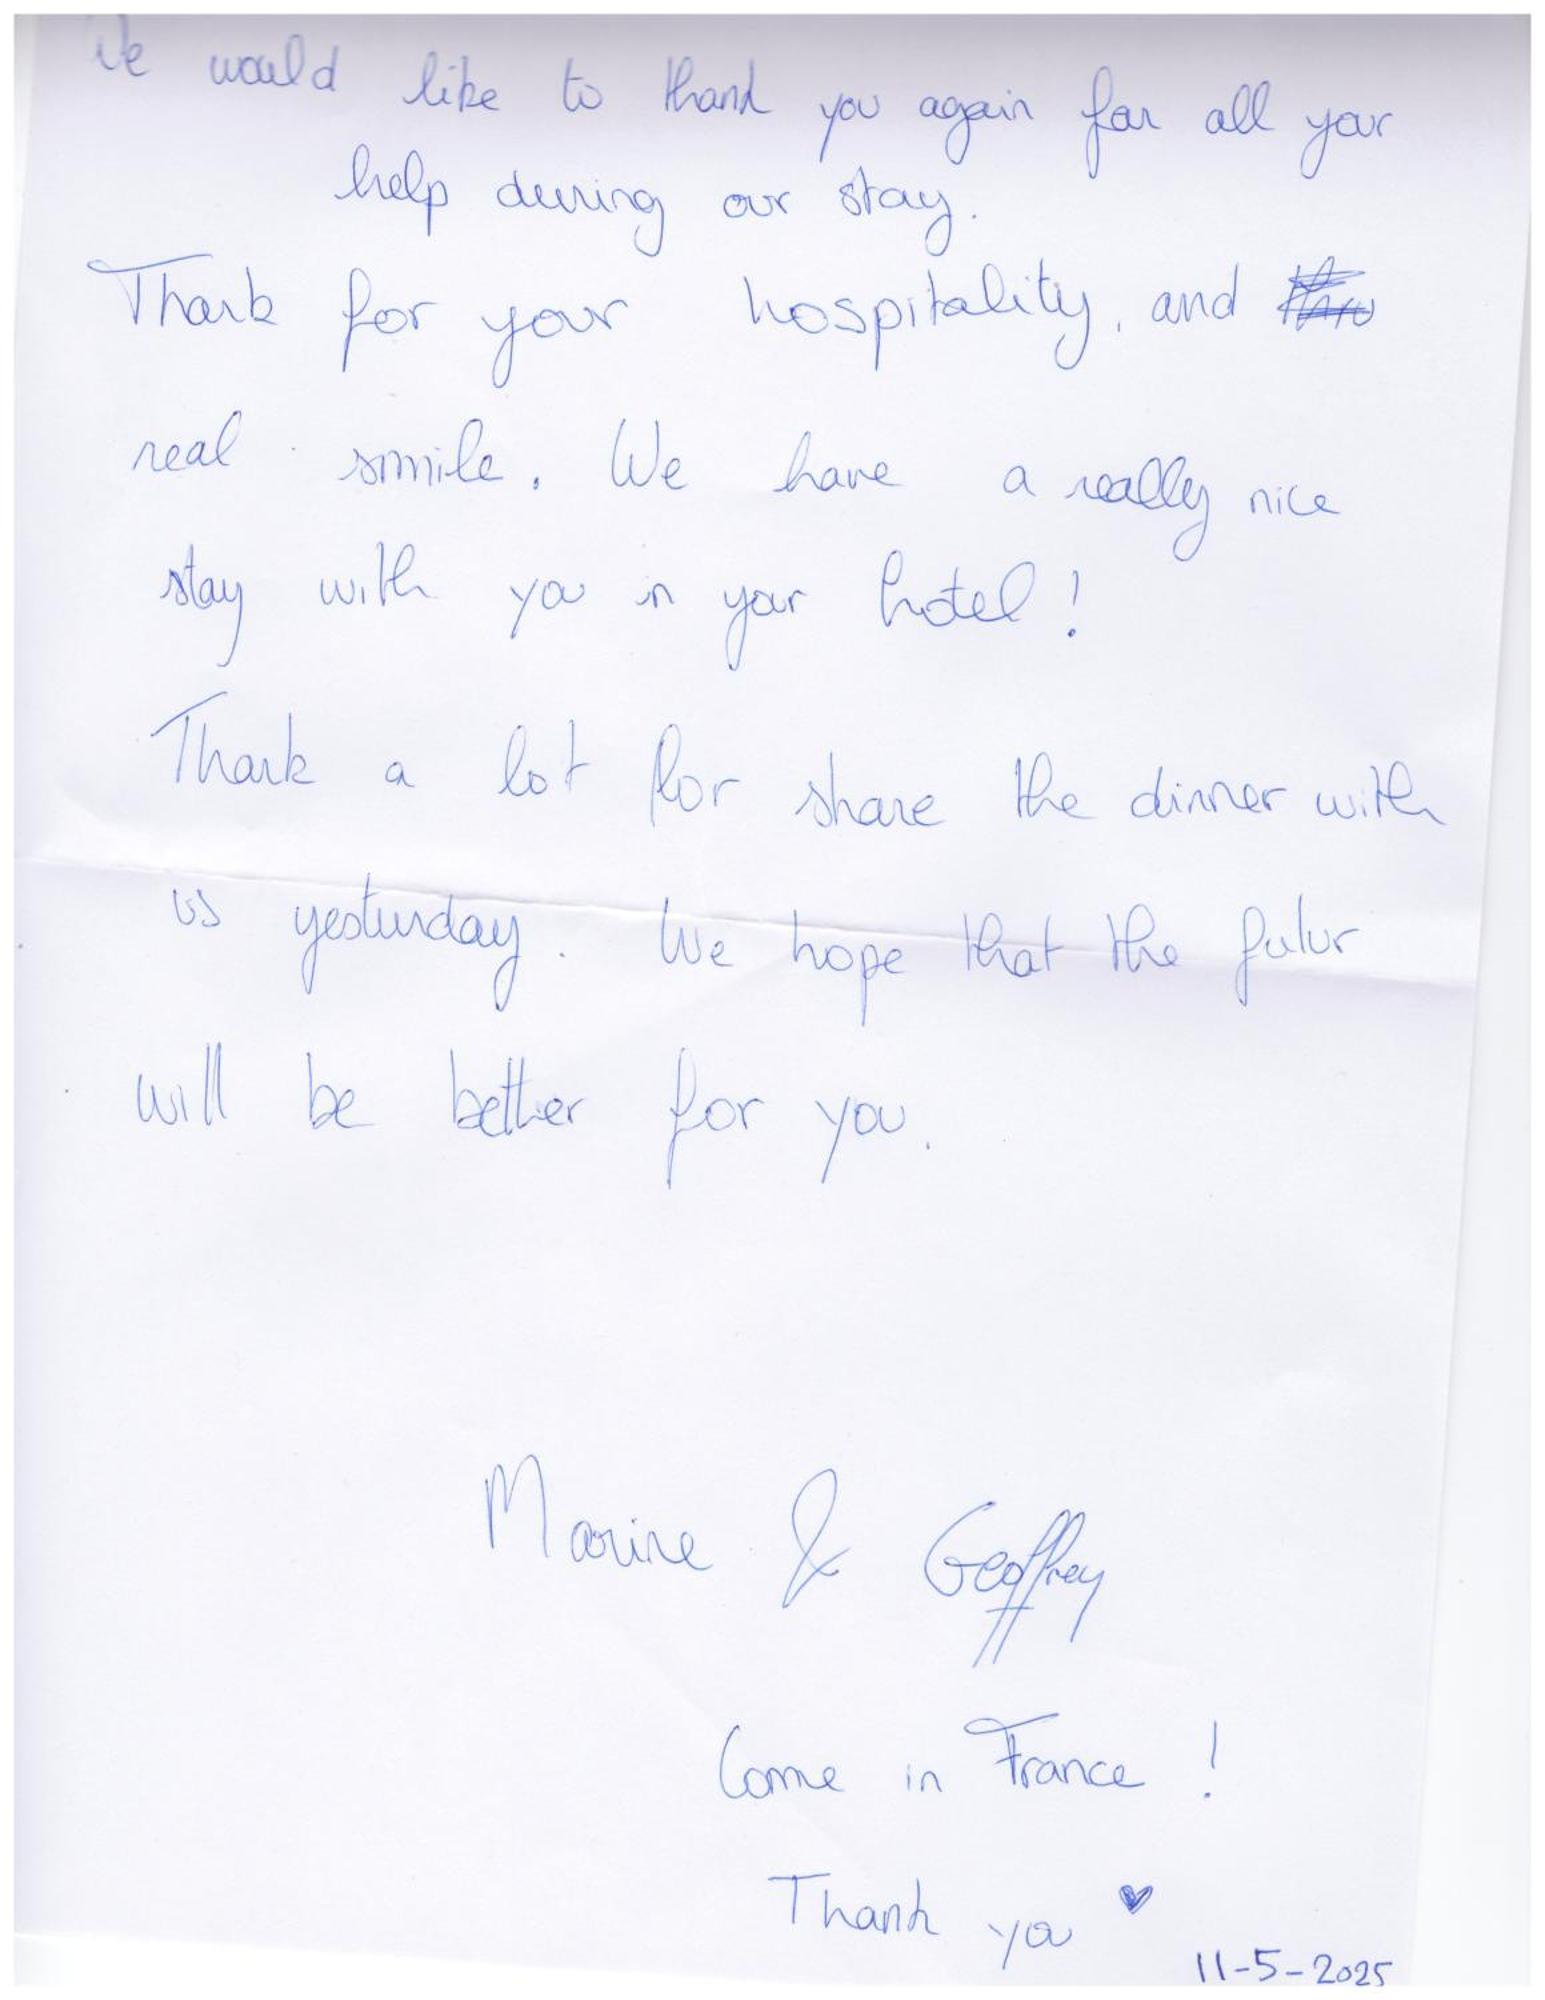 We would like to thank you again for all your
help during our stay.
Thank for your hospitality, and
real smile. We have a really nice
stay with you in your hotel!
Thank a lot for share the dinner with
us yesturday. We hope that the futur
will be better for you.
Marine & Geoffrey
Come in France !
Thank you ♥
11-5-2025